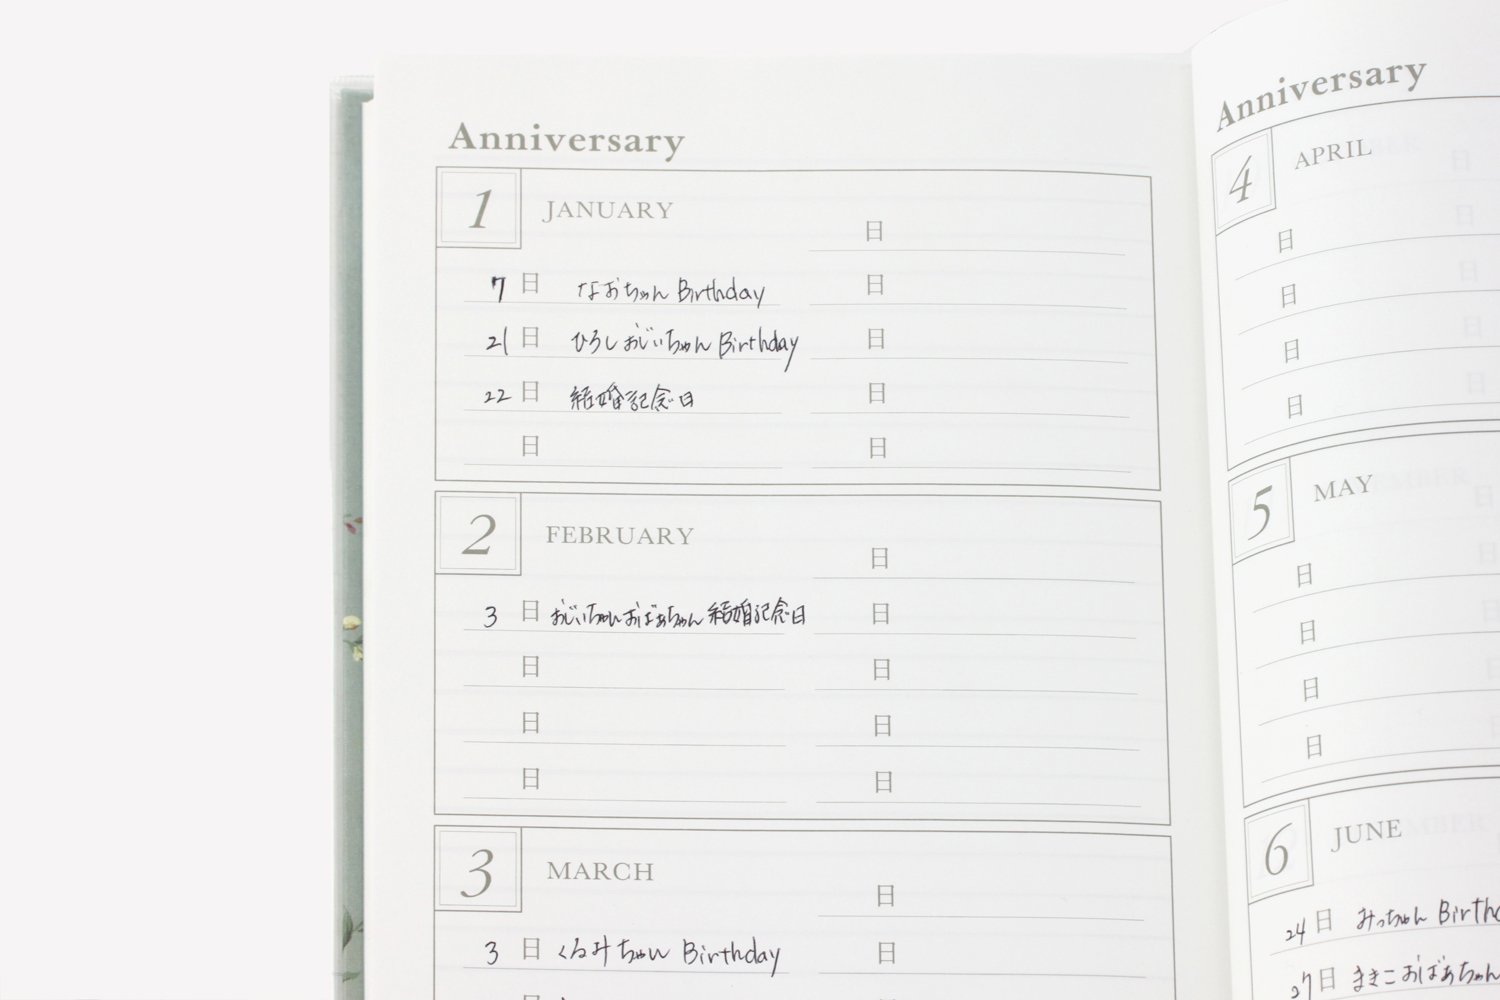 Anniversary
1 JANUARY
日
7日 なおちゃん Birthday
日
21日 ひろしおじいちゃん Birthday
日
22日 結婚記念日
日
日
日
2 FEBRUARY
日
3日 おじいちゃんおばあちゃん結婚記念日
日
日
日
日
日
日
日
3 MARCH
日
3日 くるみちゃん Birthday
日
Anniversary
4 APRIL
日
日
日
日
5 MAY
日
日
日
日
6 JUNE
24日 みっちゃん Birth
27日 まきこおばあちゃん